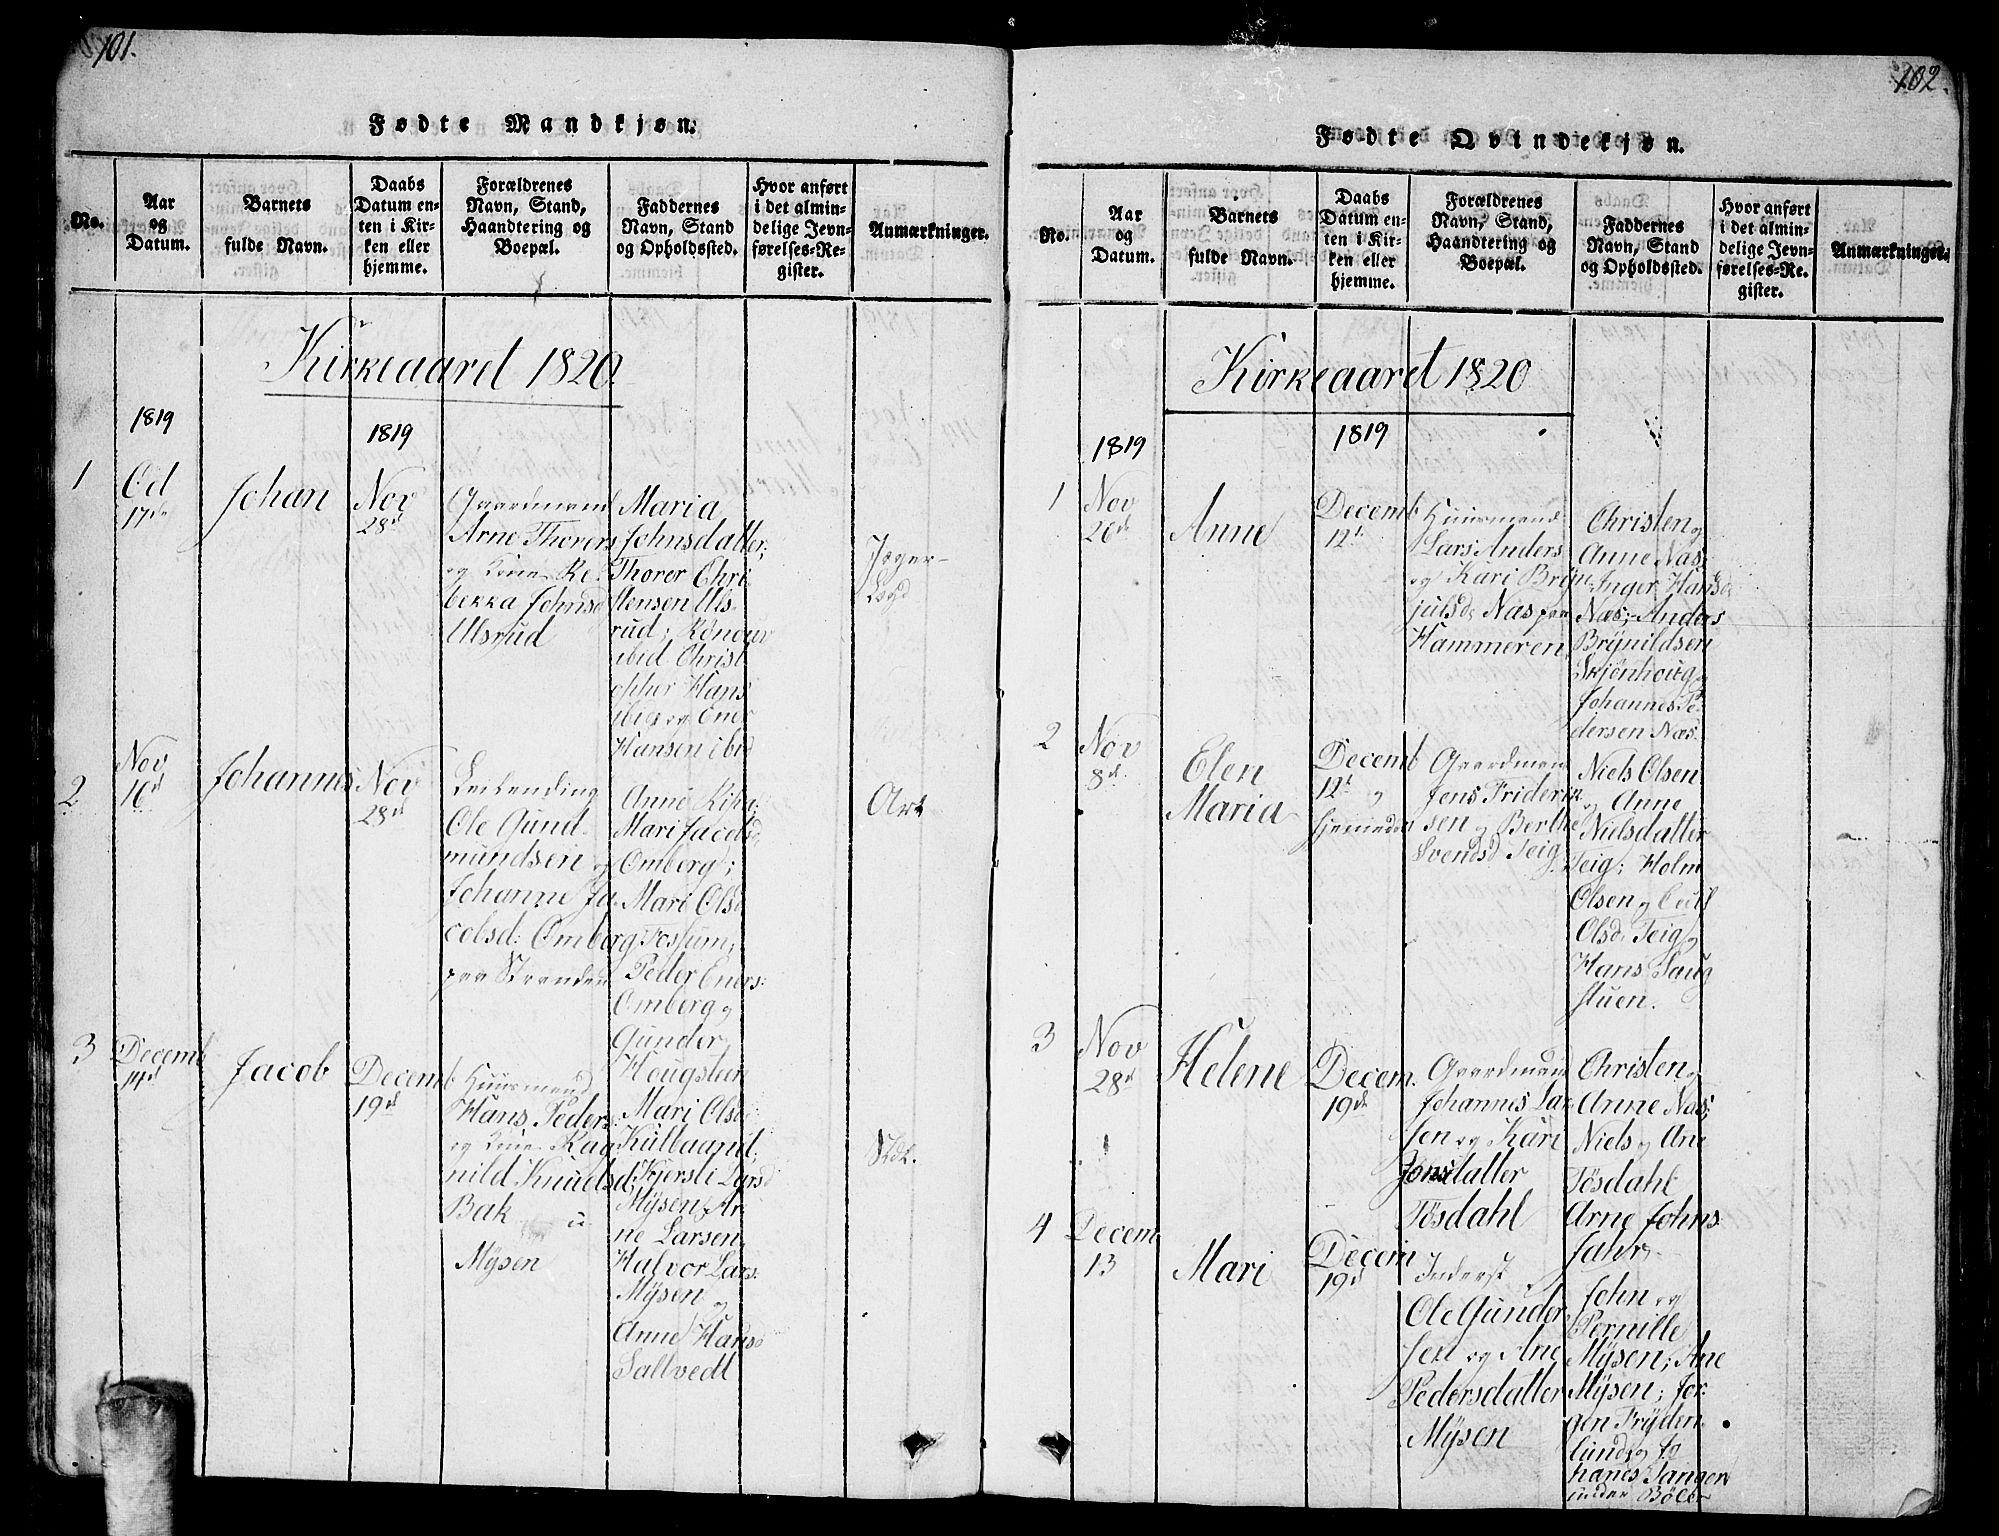 101.
Fødte Mandkjøn.
No.
Aar
og
Datum.
Barnets
fulde Navn.
Daabs
Datum en-
ten i Kir-
ken eller
hjemme.
Forældrenes
Navn, Stand,
Haandtering og
Boepæl.
Faddernes
Navn, Stand
og Opholdssted.
Hvor anført
i det almin-
delige Jevn-
førelses-Re-
gister.
Anmærkninger.
Kirkeaaret 1820.
1819
1819
1
Oct
17de
Johan
Nov
28d
Gaardmand
Arne Thorers
og Kone Re-
bekka Johnsd
Ulsrud
Maria
Johnsdatter;
Thorer Chri
stensen Uls-
rud; Rönour
ibid Christ
opher Hans
ibid og Ener
Hansen ibid
2
Nov
16d
Johannes
Nov
28d
Leilending
Ole Gund-
mundsen og
Johanne Ja-
cobsd: Omberg
paa Stranden
Anne
Mari Jacobsd
Omberg;
Mari Olsd
Fossum,
Peder Eners:
Omberg og
Gunder
Hougsteen
3
Decemb
14d
Jacob
Decemb
19d
Huusmand
Hans Peders:
og Kone Rag
nild Knudsd
Bak u
Mÿsen
Mari Olsd
Kulland;
Kjersti Larsd
Mÿsen, Ar-
ne Larsen,
Halvor Lars:
Mÿsen og
Anne Hansd
Saltvedt
102.
Fødte Qvindekjøn.
No.
Aar
og
Datum.
Barnets
fulde Navn.
Daabs
Datum en-
ten i Kir-
ken eller
hjemme.
Forældrenes
Navn, Stand,
Haandtering og
Boepæl.
Faddernes
Navn, Stand
og Opholdssted.
Hvor anført
i det almin-
delige Jevn-
førelses-Re-
gister.
Anmærkninger.
Kirkeaaret 1820
1819
1819
1
Nov
20de
Anne
Decemb
12t
Huusmand
Lars Anders
og Kari Brÿn-
julsd: Næs paa
Hammeren
Christen og
Anne Næs;
Inger Hansd
Næs; Anders
Brÿnildsen
Skjönhoug og
Johannes Pe-
dersen Næs.
2
Nov
8de
Elen
Maria
Decemb
12t
hjemmedøbt
Gaardmand
Jens Friderik
sen og Berthe
Svendsd Teig
Niels Olsen
og Anne
Nielsdatter
Teig; Holm
Olsen og
Olsd. Teig og
Hans Saug
stuen.
3
Nov
28d
Helene
Decem.
19de
Gaardmand
Johannes Lar
sen og Kari
Jonsdatter
Tösdahl
Christen og
Anne Næs;
Niels og Ane
Tösdahl
Arne Johns
Jahr
4
Decem
13
Mari
Decem
19d
Inderst
Ole Gunder
sen og Ane
Pedersdatter
Mÿsen
John og
Pernille
Mÿsen; Ane
Mÿsen; Jör-
gen Frÿden-
lund og Jo
hanes Tangen
under Böler